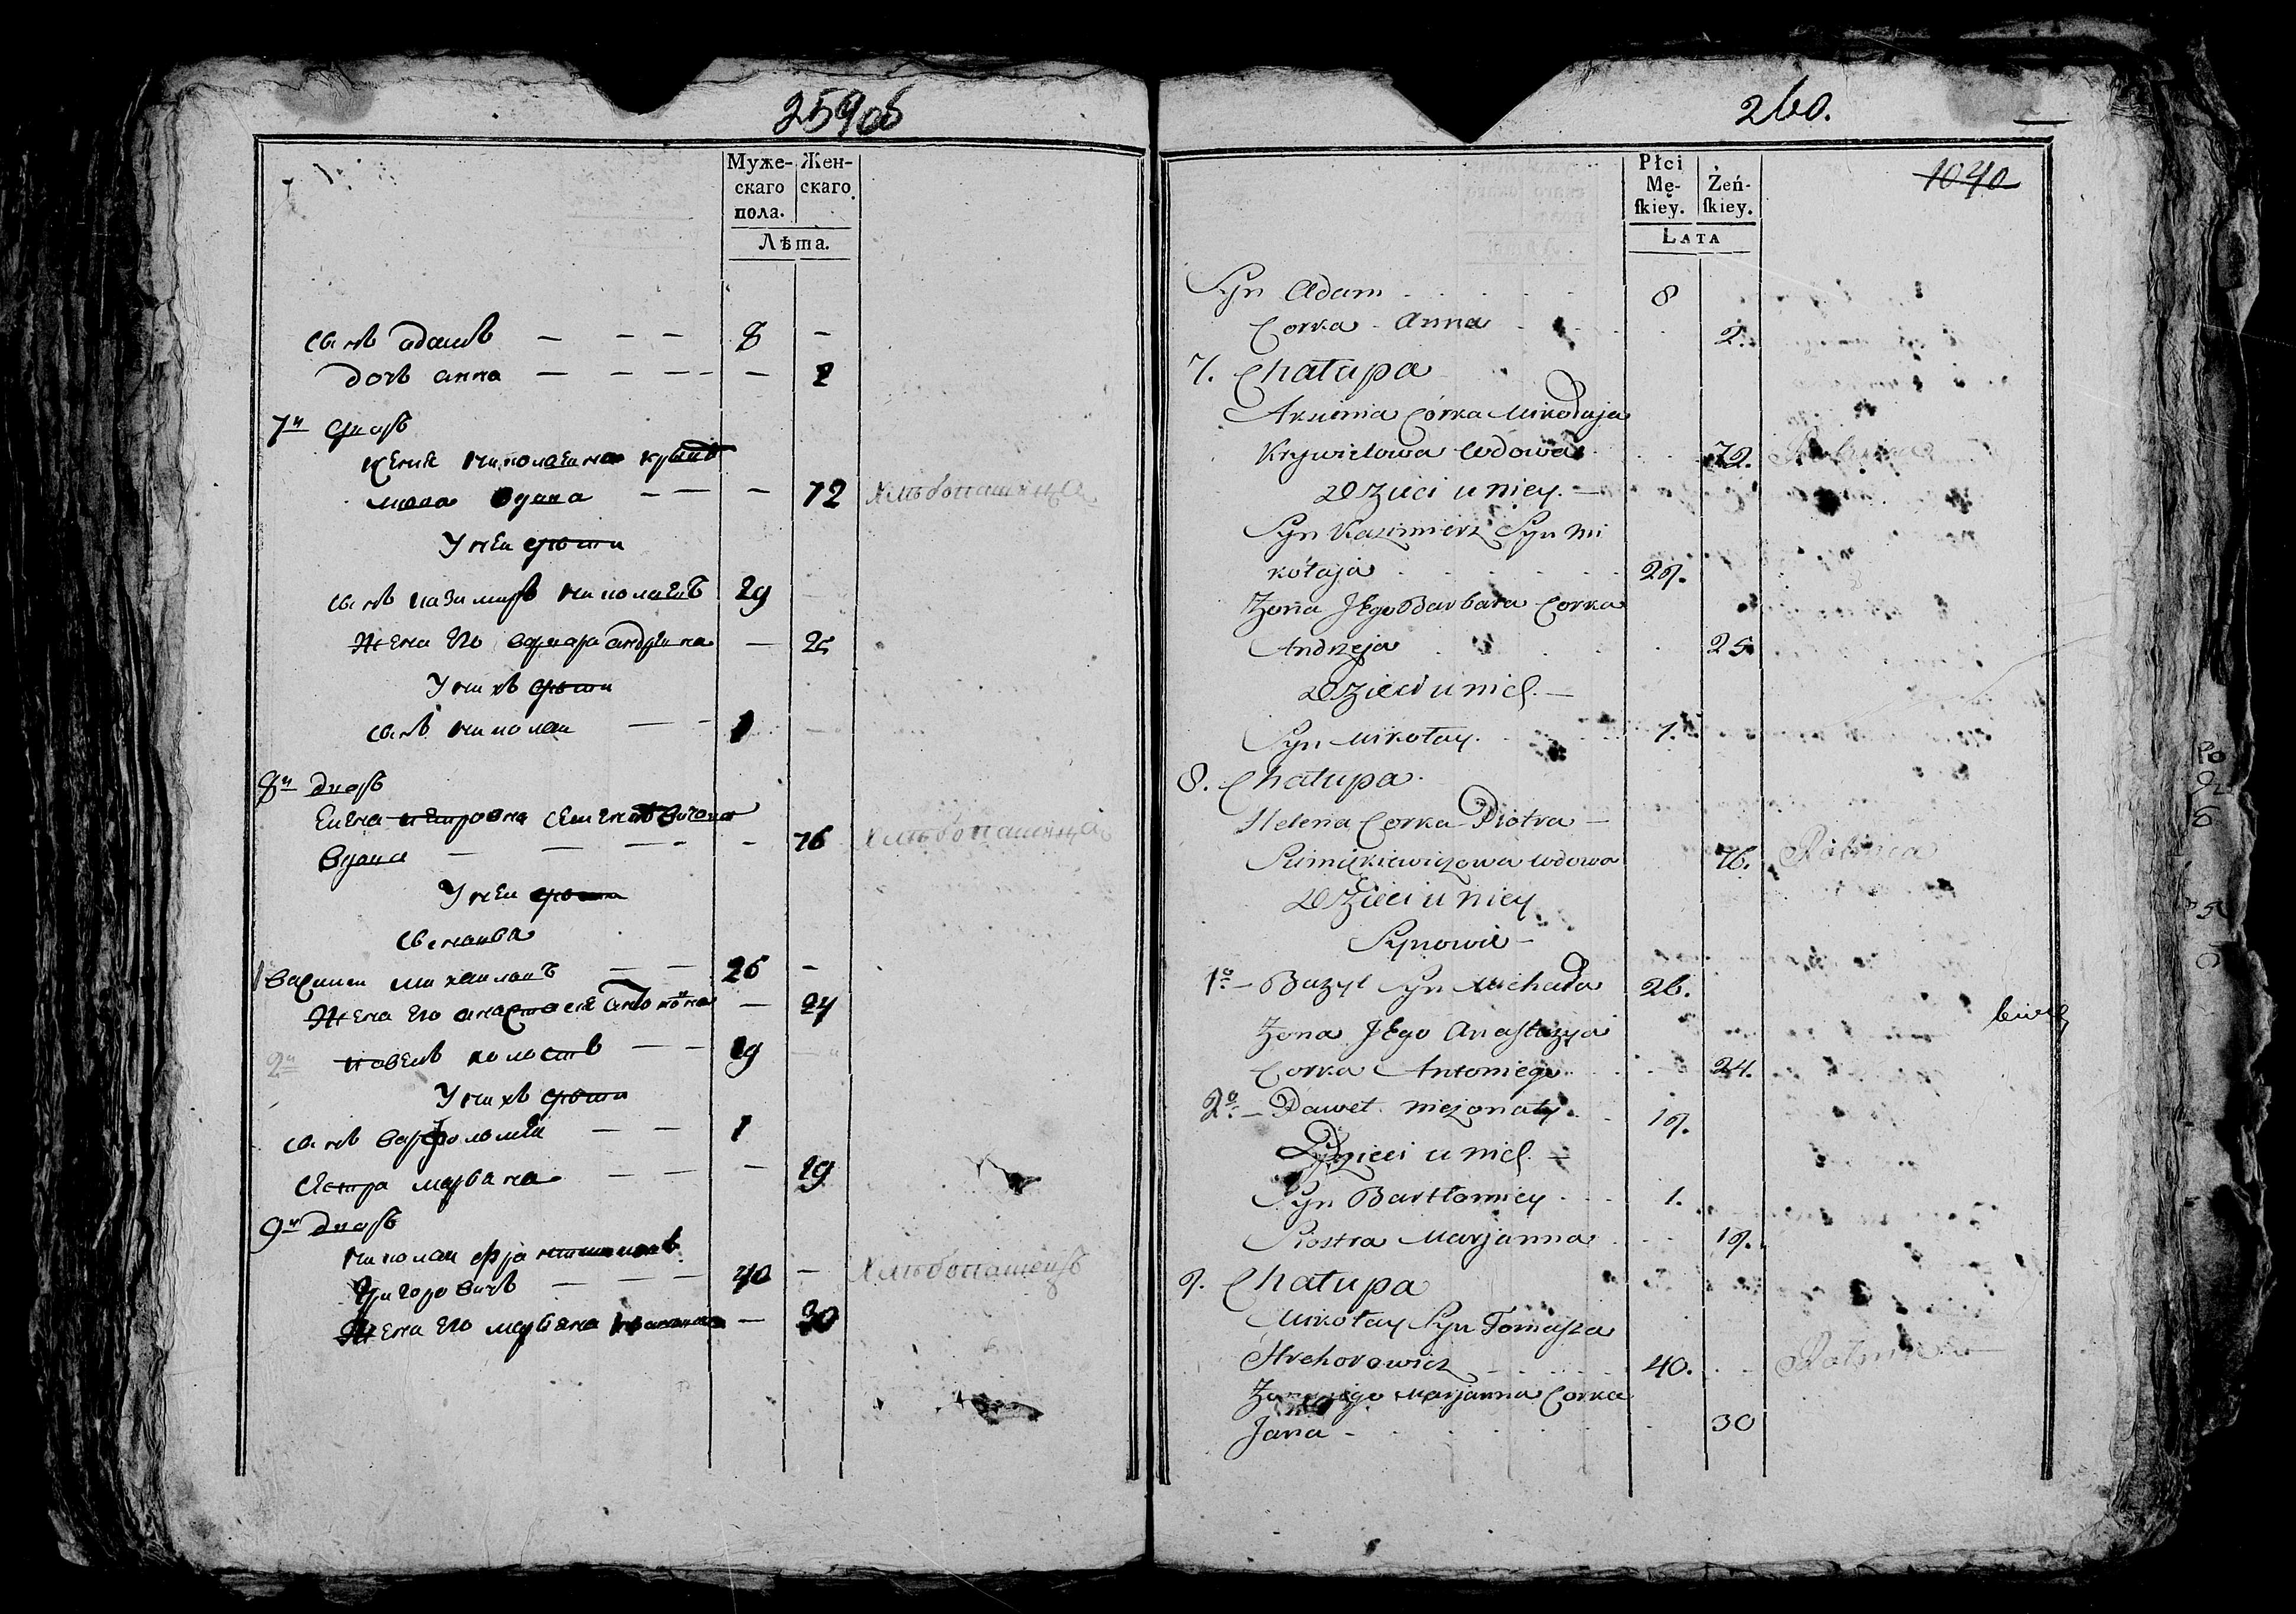 259 об
Муже-
скаго
пола.
Жен-
скаго.
Лѣта.
сынъ адамъ — — — 8 —
дочь анна — — — — — 2
7й дворъ
вдова — — — 72 Хлѣбопашица
У неи дѣти
сынъ казимиръ николаевъ 29
жена его варвара андреина — 25
У нихъ дѣти
сынъ николаи — — 1
8й дворъ
Елена петровна
вдова — — — — - 76 Хлѣбопашица
У неи дѣти
сыновя
1 василеи михаиловъ — — 26 —
жена его анастасия антонова — 24
2й павелъ холостъ — — 19
У нихъ дѣти
сынъ варфоломеи — — 1
сестра марьяна — — — 19
9й дворъ
николаи
григоровичъ — — — 40 — Хлѣбопашецъ
жена его марьяна иванова — 30
260.
1040
Płci
Mę-
skiey.
Żeń-
skiey.
LATA
Syn Adam 8
Corka Anna 2.
7. Chałupa
Aksienia Córka Mikołaja
Krywielowa Wdowa 72. Rolnica
Dzieci u niey. —
Syn Kazimierz Syn Mi
kołaja 29.
Żona Jego Barbara Corka
Andrzeja 25
Dzieci u nich. —
Syn Mikołay. 1.
8. Chałupa.
Helena Corka Piotra —
wdowa 76. Rolnica
Dzieci u niey
Synowie —
1o — Bazyl Syn Michała 26.
Żona Jego Anastazya
Corka Antoniego 24.
2o — Paweł nieżonaty. 19.
Dzieci u nich. —
Syn Bartłomiey 1.
Siostra Marjanna 19.
9. Chałupa
Mikołay Syn Tomasza
Hrehorowicz 40. Rolnik
Żona jego Marjanna Corka
Jana - 30